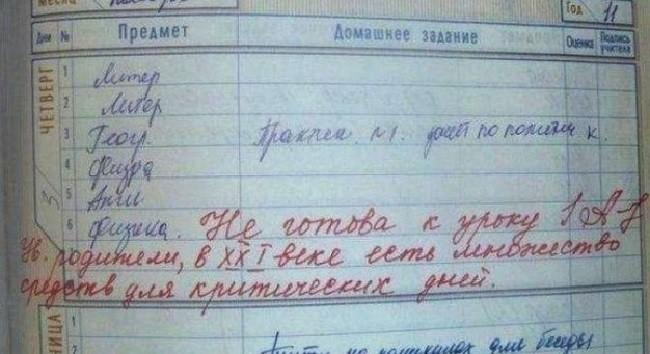 Месяц
Год 11
Дни № Предмет Домашнее задание Оценка Подпись учителя
ЧЕТВЕРГ
3
1 Литер
2 Литер
3 Геогр. по политич к.
4 Физра
5 Англ
6 Физика. Не готова к уроку
Ув. родители, в XXI веке есть множество
средств для критических дней.
НИЦА
1
2 для беседы